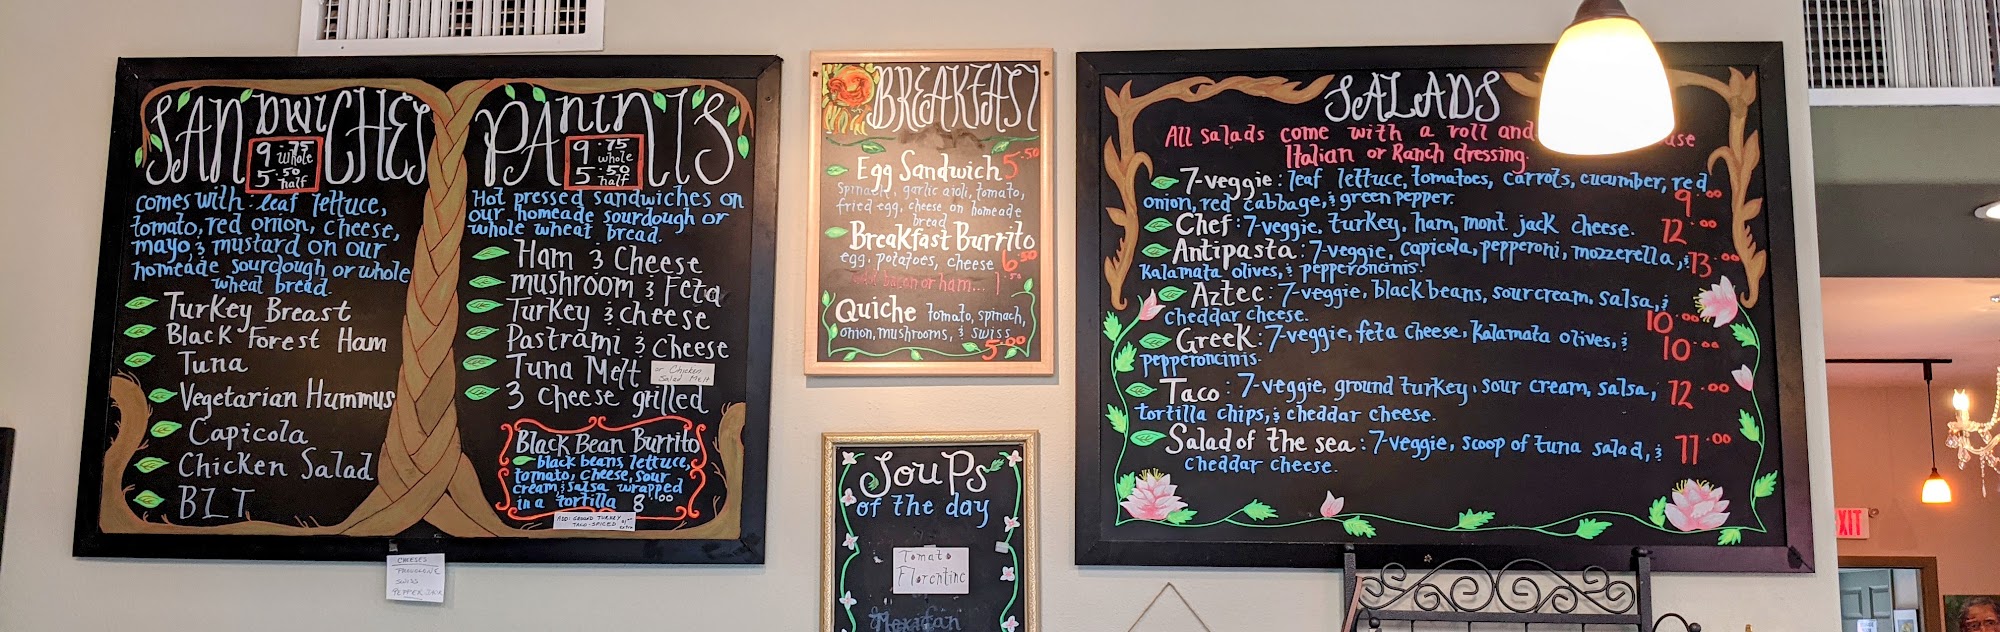 SANDWICHES
9.75 whole
5.50 half
comes with: leaf lettuce,
tomato, red onion, cheese,
mayo, & mustard on our
homeade sourdough or whole
wheat bread.
Turkey Breast
Black Forest Ham
Tuna
Vegetarian Hummus
Capicola
Chicken Salad
BLT
PANINIS
9.75 whole
5.50 half
Hot pressed sandwiches on
our homeade sourdough or
whole wheat bread.
Ham & Cheese
mushroom & Feta
Turkey & cheese
Pastrami & cheese
Tuna Melt or Chicken
Salad Melt
3 cheese grilled
Black Bean Burrito
black beans, lettuce,
tomato, cheese, sour
cream & salsa wrapped
in a tortilla 8.00
ADD: GROUND TURKEY
TACO SPICED extra
CHEESES
PROVOLONE
SWISS
PEPPER JACK
BREAKFAST
Egg Sandwich 5.50
Spinach, garlic aioli, tomato,
fried egg, cheese on homeade
bread
Breakfast Burrito
egg, potatoes, cheese 6.50
add bacon or ham... 1.50
Quiche tomato, spinach,
onion, mushrooms, & swiss
5.00
Soups
of the day
Tomato
Florentine
Mexican
SALADS
All salads come with a roll and
Italian or Ranch dressing.
7-veggie: leaf lettuce, tomatoes, carrots, cucumber, red
onion, red cabbage, & green pepper. 9.00
Chef: 7-veggie, turkey, ham, mont. jack cheese. 12.00
Antipasta: 7-veggie, capicola, pepperoni, mozzerella, & 13.00
Kalamata olives, & pepperoncinis.
Aztec: 7-veggie, black beans, sour cream, salsa, &
cheddar cheese. 10.00
Greek: 7-veggie, feta cheese, kalamata olives, & 10.00
pepperoncinis.
Taco: 7-veggie, ground turkey, sour cream, salsa, 12.00
tortilla chips, & cheddar cheese.
Salad of the sea: 7-veggie, scoop of tuna salad, & 11.00
cheddar cheese.
EXIT